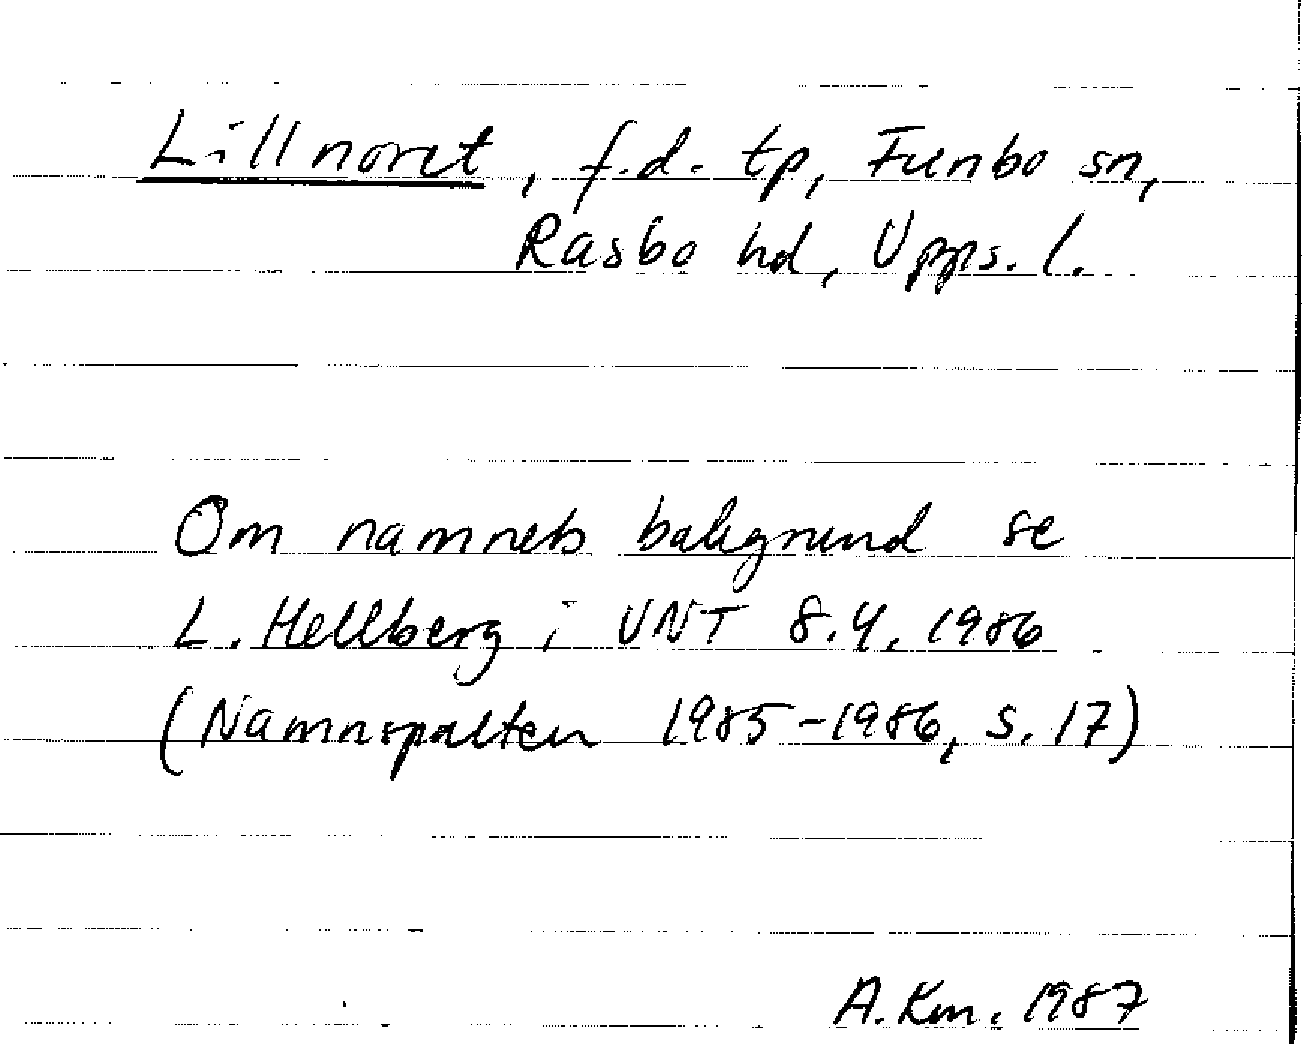 Lillnoret, f.d. tp, Funbo sn,
Rasbo hd, Upps. l.
Om namnets bakgrund se
L. Hellberg i UNT 8.4.1986
(Namnspalten 1985-1986, s. 17)
A. Km. 1987